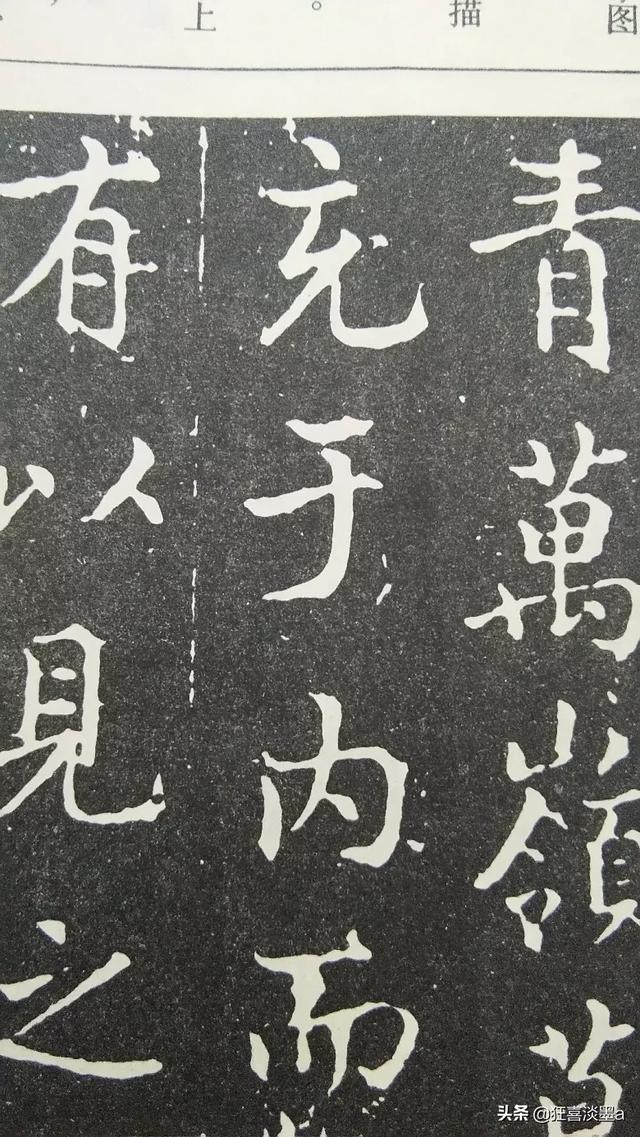 图
描
。
上
青萬嶺
充于内而
有以見之
头条 @狂喜淡墨a